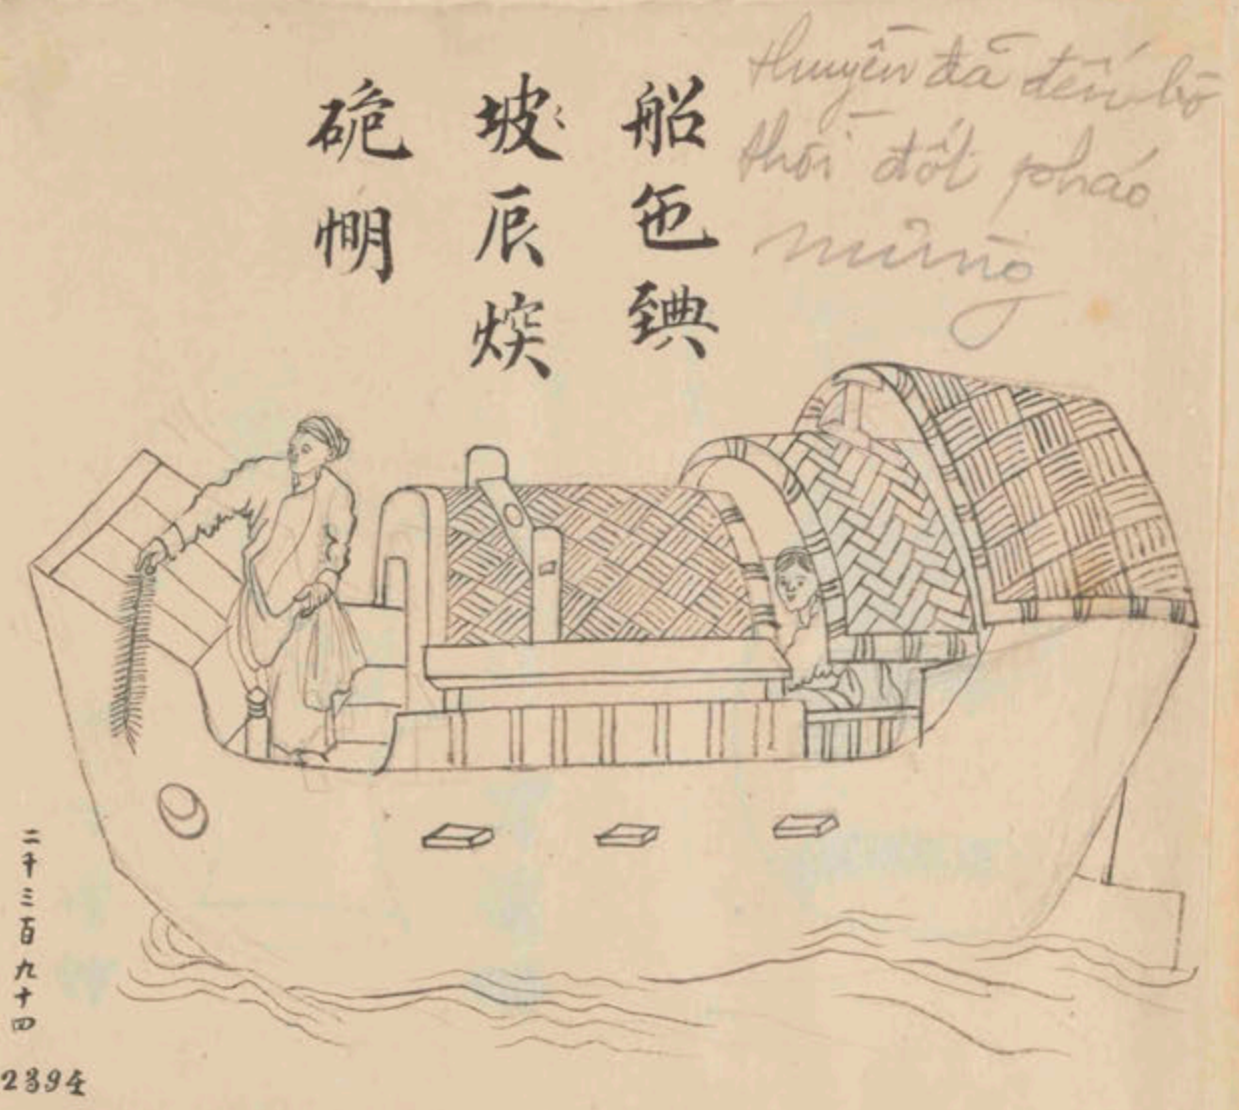 thuyền đã đến bờ
thời đốt pháo
mừng
船㐌𦤾
坡〻辰㷝
硊𢜠
二千三百九十四
2394